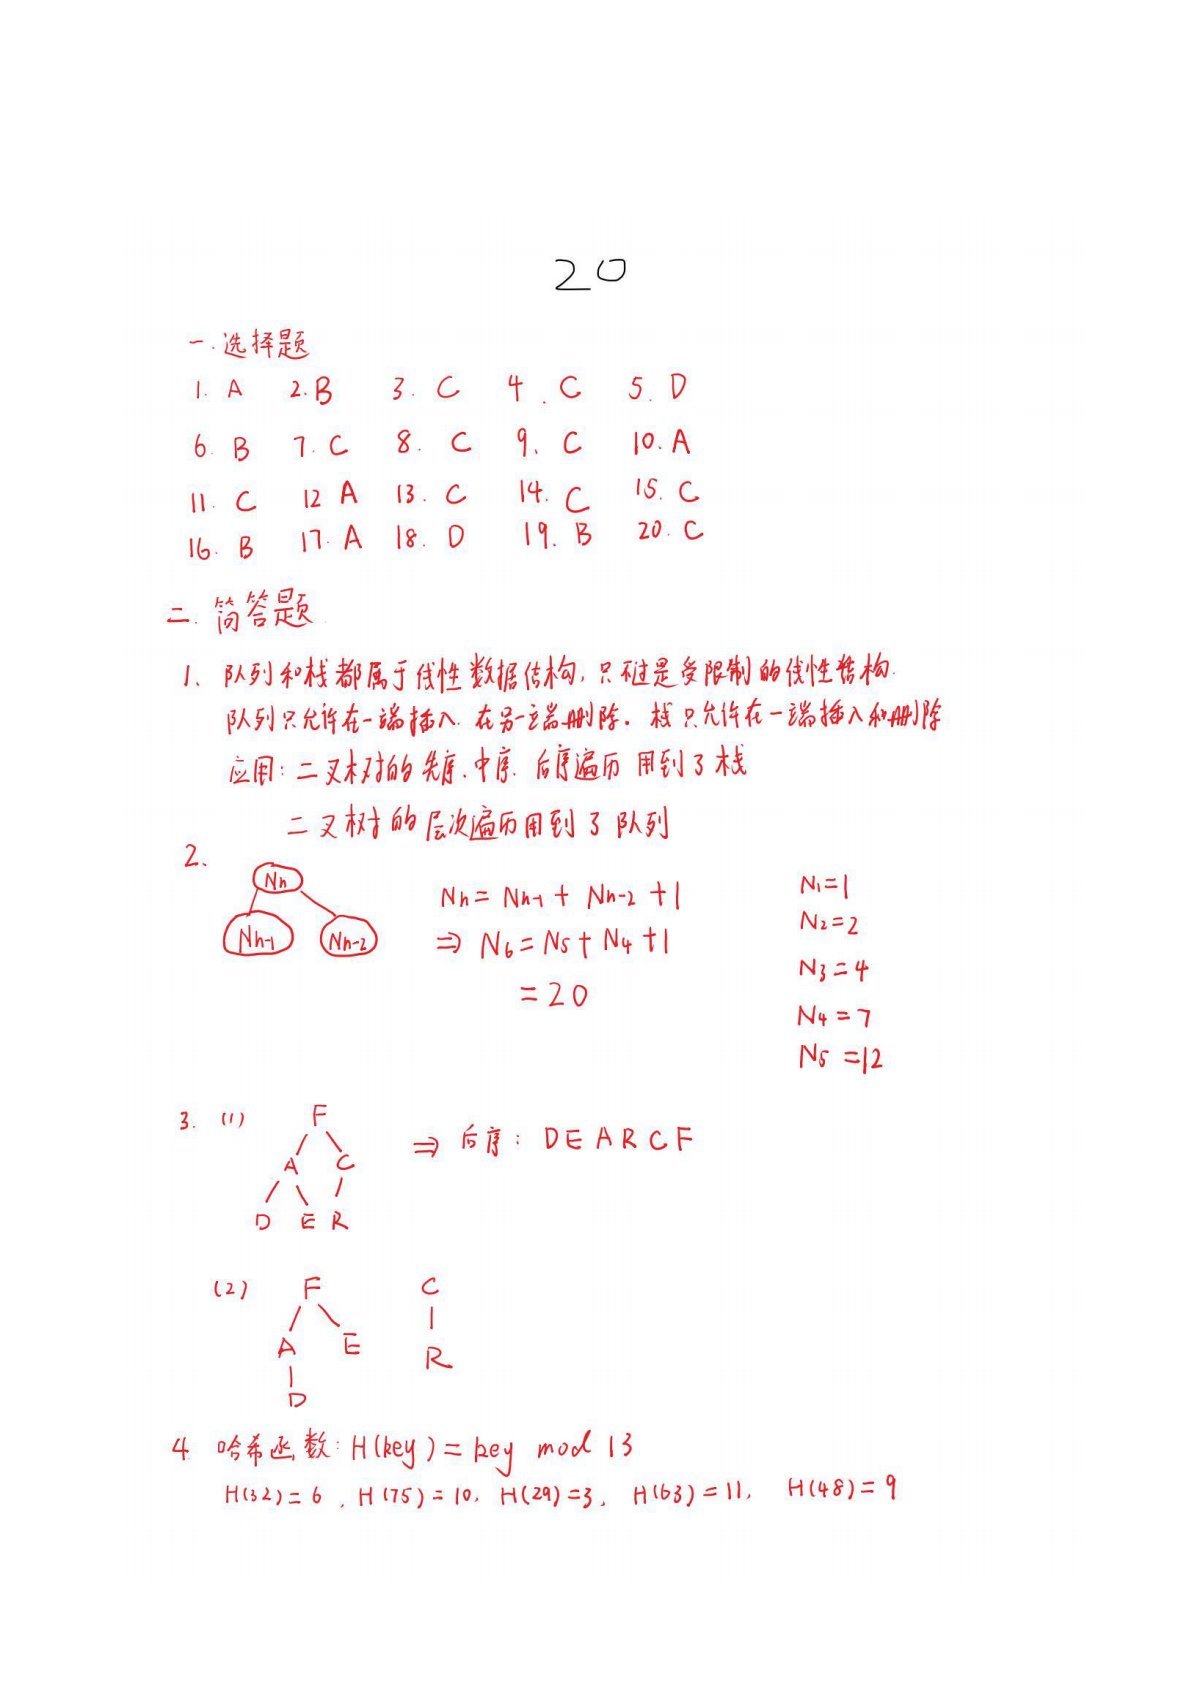 20
一.选择题
1. A 2. B 3. C 4. C 5. D
6. B 7. C 8. C 9. C 10. A
11. C 12 A 13. C 14. C 15. C
16. B 17. A 18. D 19. B 20. C
二. 简答题
1、队列和栈都属于线性数据结构,只不过是受限制的线性结构.
队列只允许在一端插入.在另一端删除. 栈只允许在一端插入和删除
应用: 二叉树的先序.中序.后序遍历 用到了栈
二叉树的层次遍历用到了队列
2、
Nn
Nn-1 Nn-2
Nn = Nn-1 + Nn-2 + 1
⇒ N6 = N5 + N4 + 1
= 20
N1 = 1
N2 = 2
N3 = 4
N4 = 7
N5 = 12
3. (1) F
A C
D E R
⇒ 后序: D E A R C F
(2) F C
A E R
D
4 哈希函数: H(key) = key mod 13
H(32) = 6 , H(75) = 10, H(29) = 3, H(63) = 11, H(48) = 9